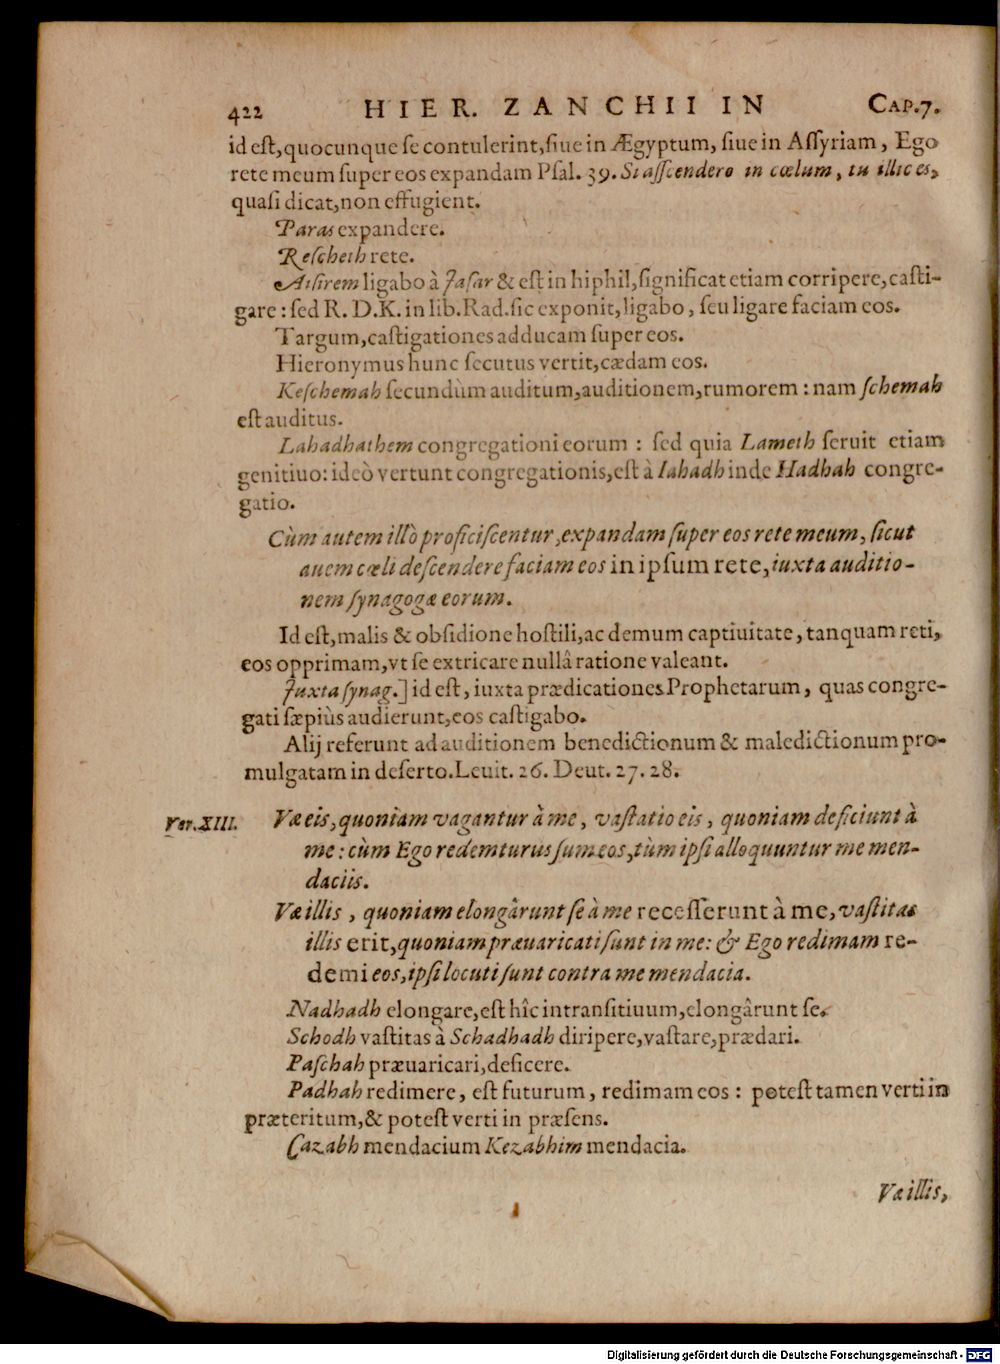 422 HIER. ZANCHII IN CAP.7.
id eſt,quocunque ſe contulerint,ſiue in Ægyptum, ſiue in Aſſyriam, Ego
rete meum ſuper eos expandam Pſal. 39. Si aſſcendero in cœlum, tu illic es,
quaſi dicat,non effugient.
Paras expandere.
Reſcheth rete.
Aiſirem ligabo à Jaſar & eſt in hiphil,ſignificat etiam corripere,caſti-
gare : ſed R. D.K. in lib.Rad.ſic exponit,ligabo, ſeu ligare faciam eos.
Targum,caſtigationes adducam ſuper eos.
Hieronymus hunc ſecutus vertit,cædam eos.
Keſchemah ſecundùm auditum,auditionem,rumorem : nam ſchemah
eſt auditus.
Lahadhathem congregationi eorum : ſed quia Lameth ſeruit etiam
genitiuo: ideò vertunt congregationis,eſt à Iahadh inde Hadhah congre-
gatio.
Cùm autem illò proficiſcentur,expandam ſuper eos rete meum, ſicut
auem cœli deſcendere faciam eos in ipſum rete,iuxta auditio-
nem ſynagogæ eorum.
Id eſt,malis & obſidione hoſtili,ac demum captiuitate, tanquam reti,
eos opprimam,vt ſe extricare nullâ ratione valeant.
Juxta ſynag.] id eſt, iuxta prædicationes Prophetarum, quas congre-
gati ſæpiùs audierunt,eos caſtigabo.
Alij referunt ad auditionem benedictionum & maledictionum pro-
mulgatam in deſerto.Leuit. 26. Deut. 27. 28.
Ver.XIII. Væ eis,quoniam vagantur à me, vaſtatio eis, quoniam deficiunt à
me : cùm Ego redemturus ſum eos,tùm ipſi alloquuntur me men-
daciis.
Væ illis, quoniam elongârunt ſe à me receſſerunt à me,vaſtitas
illis erit,quoniam præuaricati ſunt in me: & Ego redimam re-
demi eos,ipſi locuti ſunt contra me mendacia.
Nadhadh elongare,eſt hîc intranſitiuum,elongârunt ſe.
Schodh vaſtitas à Schadhadh diripere,vaſtare,prædari.
Paſchah præuaricari,deficere.
Padhah redimere, eſt futurum, redimam eos : poteſt tamen verti in
præteritum,& poteſt verti in præſens.
Cazabh mendacium Kezabhim mendacia.
Væ illis,
Digitalisierung gefördert durch die Deutsche Forschungsgemeinschaft - DFG